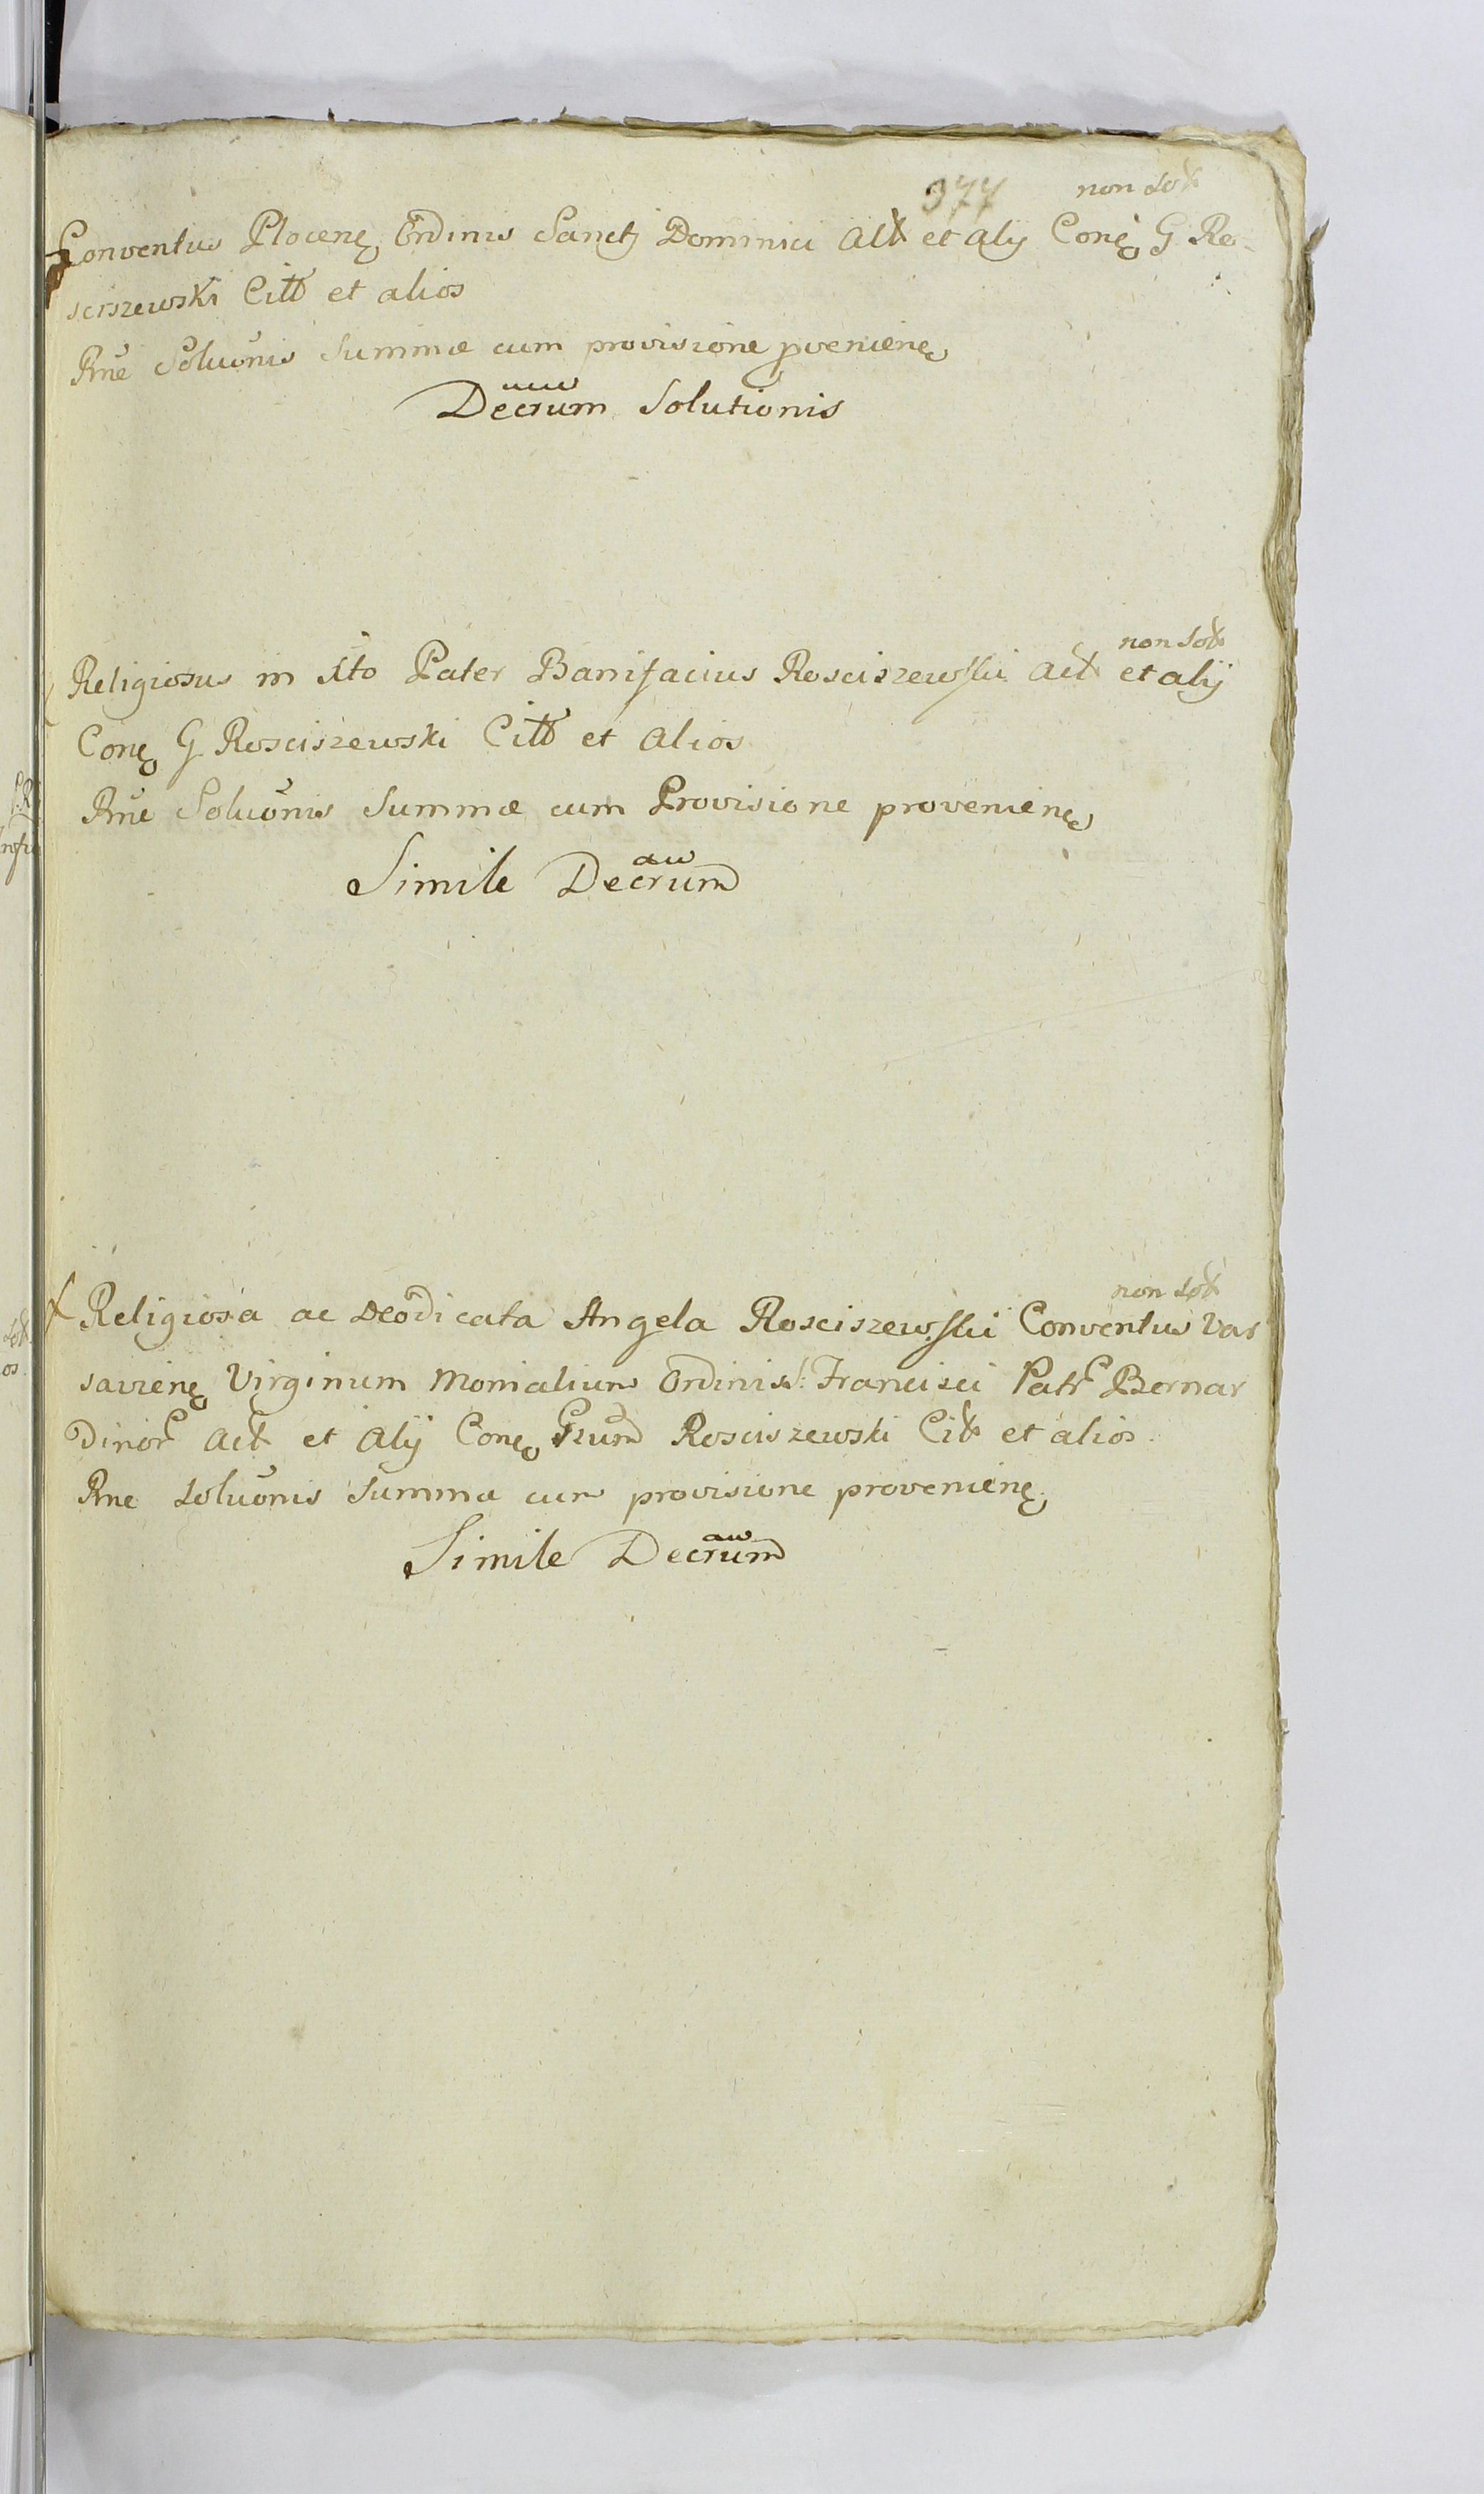 377 non Sol
Conventus Plocen Ordinis Sancti Dominici Act et alij Con G Ro-
sciszewski Citt et alios
Rne Soluonis Summæ cum provisione pvenien
Decrum Solutionis
non Sol
Religiosus in Xto Pater Banifacius Rosciszewski Act et alij
Con G Rosciszewski Citt et Alios
Rne Soluonis Summæ cum Provisione provenien
Simile Decrum
non Sol
Religiosa ac Deodicata Angela Rosciszewski Conventus Var
savien Virginum Monialium Ordinis S. Francisci Patr Bernar
dinor Act et Alij Con Grum Rosciszewski Cit et alios
Rne Soluonis Summa cum provisione provenien
Simile Decrum